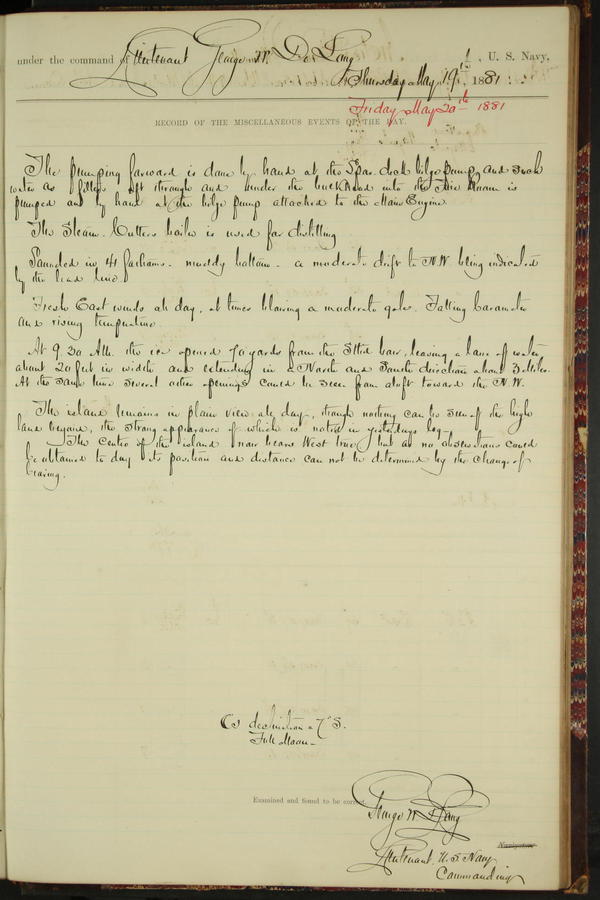 under the command of Lieutenant George W. De Long, U. S. Navy,
Thursday May 19th, 1881.
Friday May 20th 1881
RECORD OF THE MISCELLANEOUS EVENTS OF THE DAY.
The pumping forward is done by hand at the Spar deck bilge pump, and such
water as filters aft through and under the bulkhead into the Fire Room is
pumped out by hand at the bilge pump attached to the Main Engine.
The Steam Cutters boiler is used for distilling
Sounded in 41 fathoms - muddy bottom - a moderate drift to NW being indicated
by the lead line.
Fresh East winds all day, at times blowing a moderate gale. Falling barometer
and rising temperature
At 9.30 AM. the ice opened 70 yards from the Stbd bow, leaving a lane of water
about 20 feet in width and extending in a North and South direction about 3 Miles.
At the same time several other openings could be seen from aloft toward the N.W.
The island remains in plain view all day, though nothing can be seen of the high
land beyond, the strong appearance of which is noted in yesterdays log.
The center of the island now bears West true, but as no observations could
be obtained to day its position and distance can not be determined by the change of
bearing.
declination 7° S.
Full Moon
Examined and found to be correct.
George W. De Long
Navigator
Lieutenant U. S. Navy
Commanding